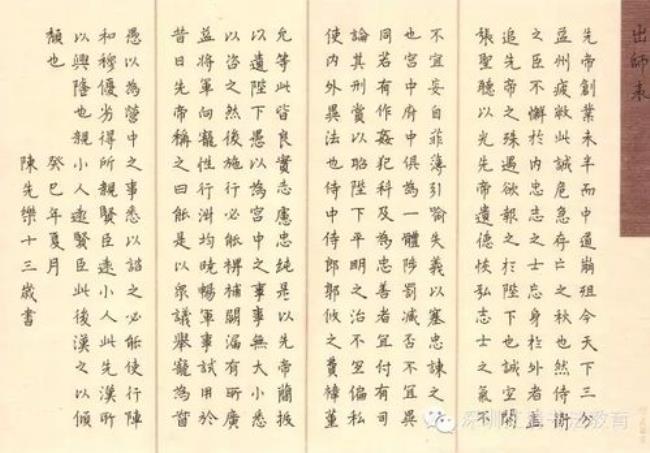 出師表
先帝創業未半而中道崩殂今天下三分
益州疲敝此誠危急存亡之秋也然侍衛
之臣不懈於內忠志之士忘身於外者蓋
追先帝之殊遇欲報之於陛下也誠宜開
張聖聽以光先帝遺德恢弘志士之氣不
不宜妄自菲薄引喻失義以塞忠諫之路
也宮中府中俱為一體陟罰臧否不宜異
同若有作姦犯科及為忠善者宜付有司
論其刑賞以昭陛下平明之治不宜偏私
使內外異法也侍中侍郎郭攸之費禕董
允等此皆良實志慮忠純是以先帝簡拔
以遺陛下愚以為宮中之事事無大小悉
以咨之然後施行必能裨補闕漏有所廣
益將軍向寵性行淑均曉暢軍事試用於
昔日先帝稱之曰能是以眾議舉寵為督
愚以為營中之事悉以諮之必能使行陣
和穆優劣得所親賢臣遠小人此先漢所
以興隆也親小人遠賢臣此後漢之以傾
頹也 癸巳年夏月
陳先樂十三歲書
深圳书法教育